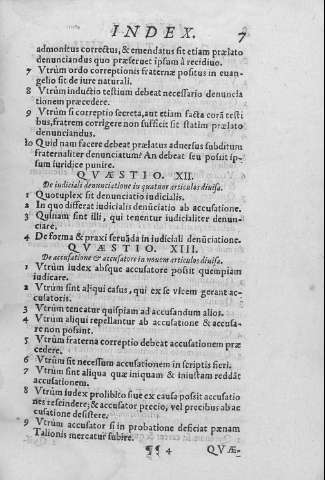 INDEX. 7
admonitus correctus, & emendatus sit etiam prælato
denunciandus quo præseruet ipsum à recidiuo.
7 Vtrùm ordo correptionis fraternæ positus in euan-
gelio sit de iure naturali.
8 Vtrùm inductio testium debeat necessario denuncia
tionem præcedere.
9 Vtrùm si correptio secreta, aut etiam facta corā testi
bus, fratrem corrigere non sufficit sit statim prælato
denunciandus.
10 Quid nam facere debeat prælatus aduersus subditum
fraternaliter denunciatum? An debeat seu possit ip-
sum iuridice punire.
QVÆSTIO. XII.
De iudiciali denunciatione in quatuor articulos diuisa.
1 Quotuplex sit denunciatio iudicialis.
2 In quo differat iudicialis denūciatio ab accusatione.
3 Quinam sint illi, qui tenentur iudicialiter denun-
ciare.
4 De forma & praxi seruāda in iudiciali denūciatione.
QVÆSTIO. XIII.
De accusatione & accusatore in nouem articulos diuisa.
1 Vtrùm iudex absque accusatore possit quempiam
iudicare.
2 Vtrùm sint aliqui casus, qui ex se vicem gerant ac-
cusatoris.
3 Vtrùm teneatur quispiam ad accusandum alios.
4 Vtrùm aliqui repellantur ab accusatione & accusa-
re non possint.
5 Vtrùm fraterna correptio debeat accusationem præ
cedere.
6 Vtrùm sit necessum accusationem in scriptis fieri.
7 Vtrùm sint aliqua quæ iniquam & iniustam reddāt
accusationem.
8 Vtrùm iudex prohibito siue ex causa possit accusatio
nes rescindere; & accusator precio, vel precibus abac
cusatione desistere.
9 Vtrùm accusator si in probatione deficiat pænam
Talionis mercatur subire.
¶¶ 4 QVÆ-